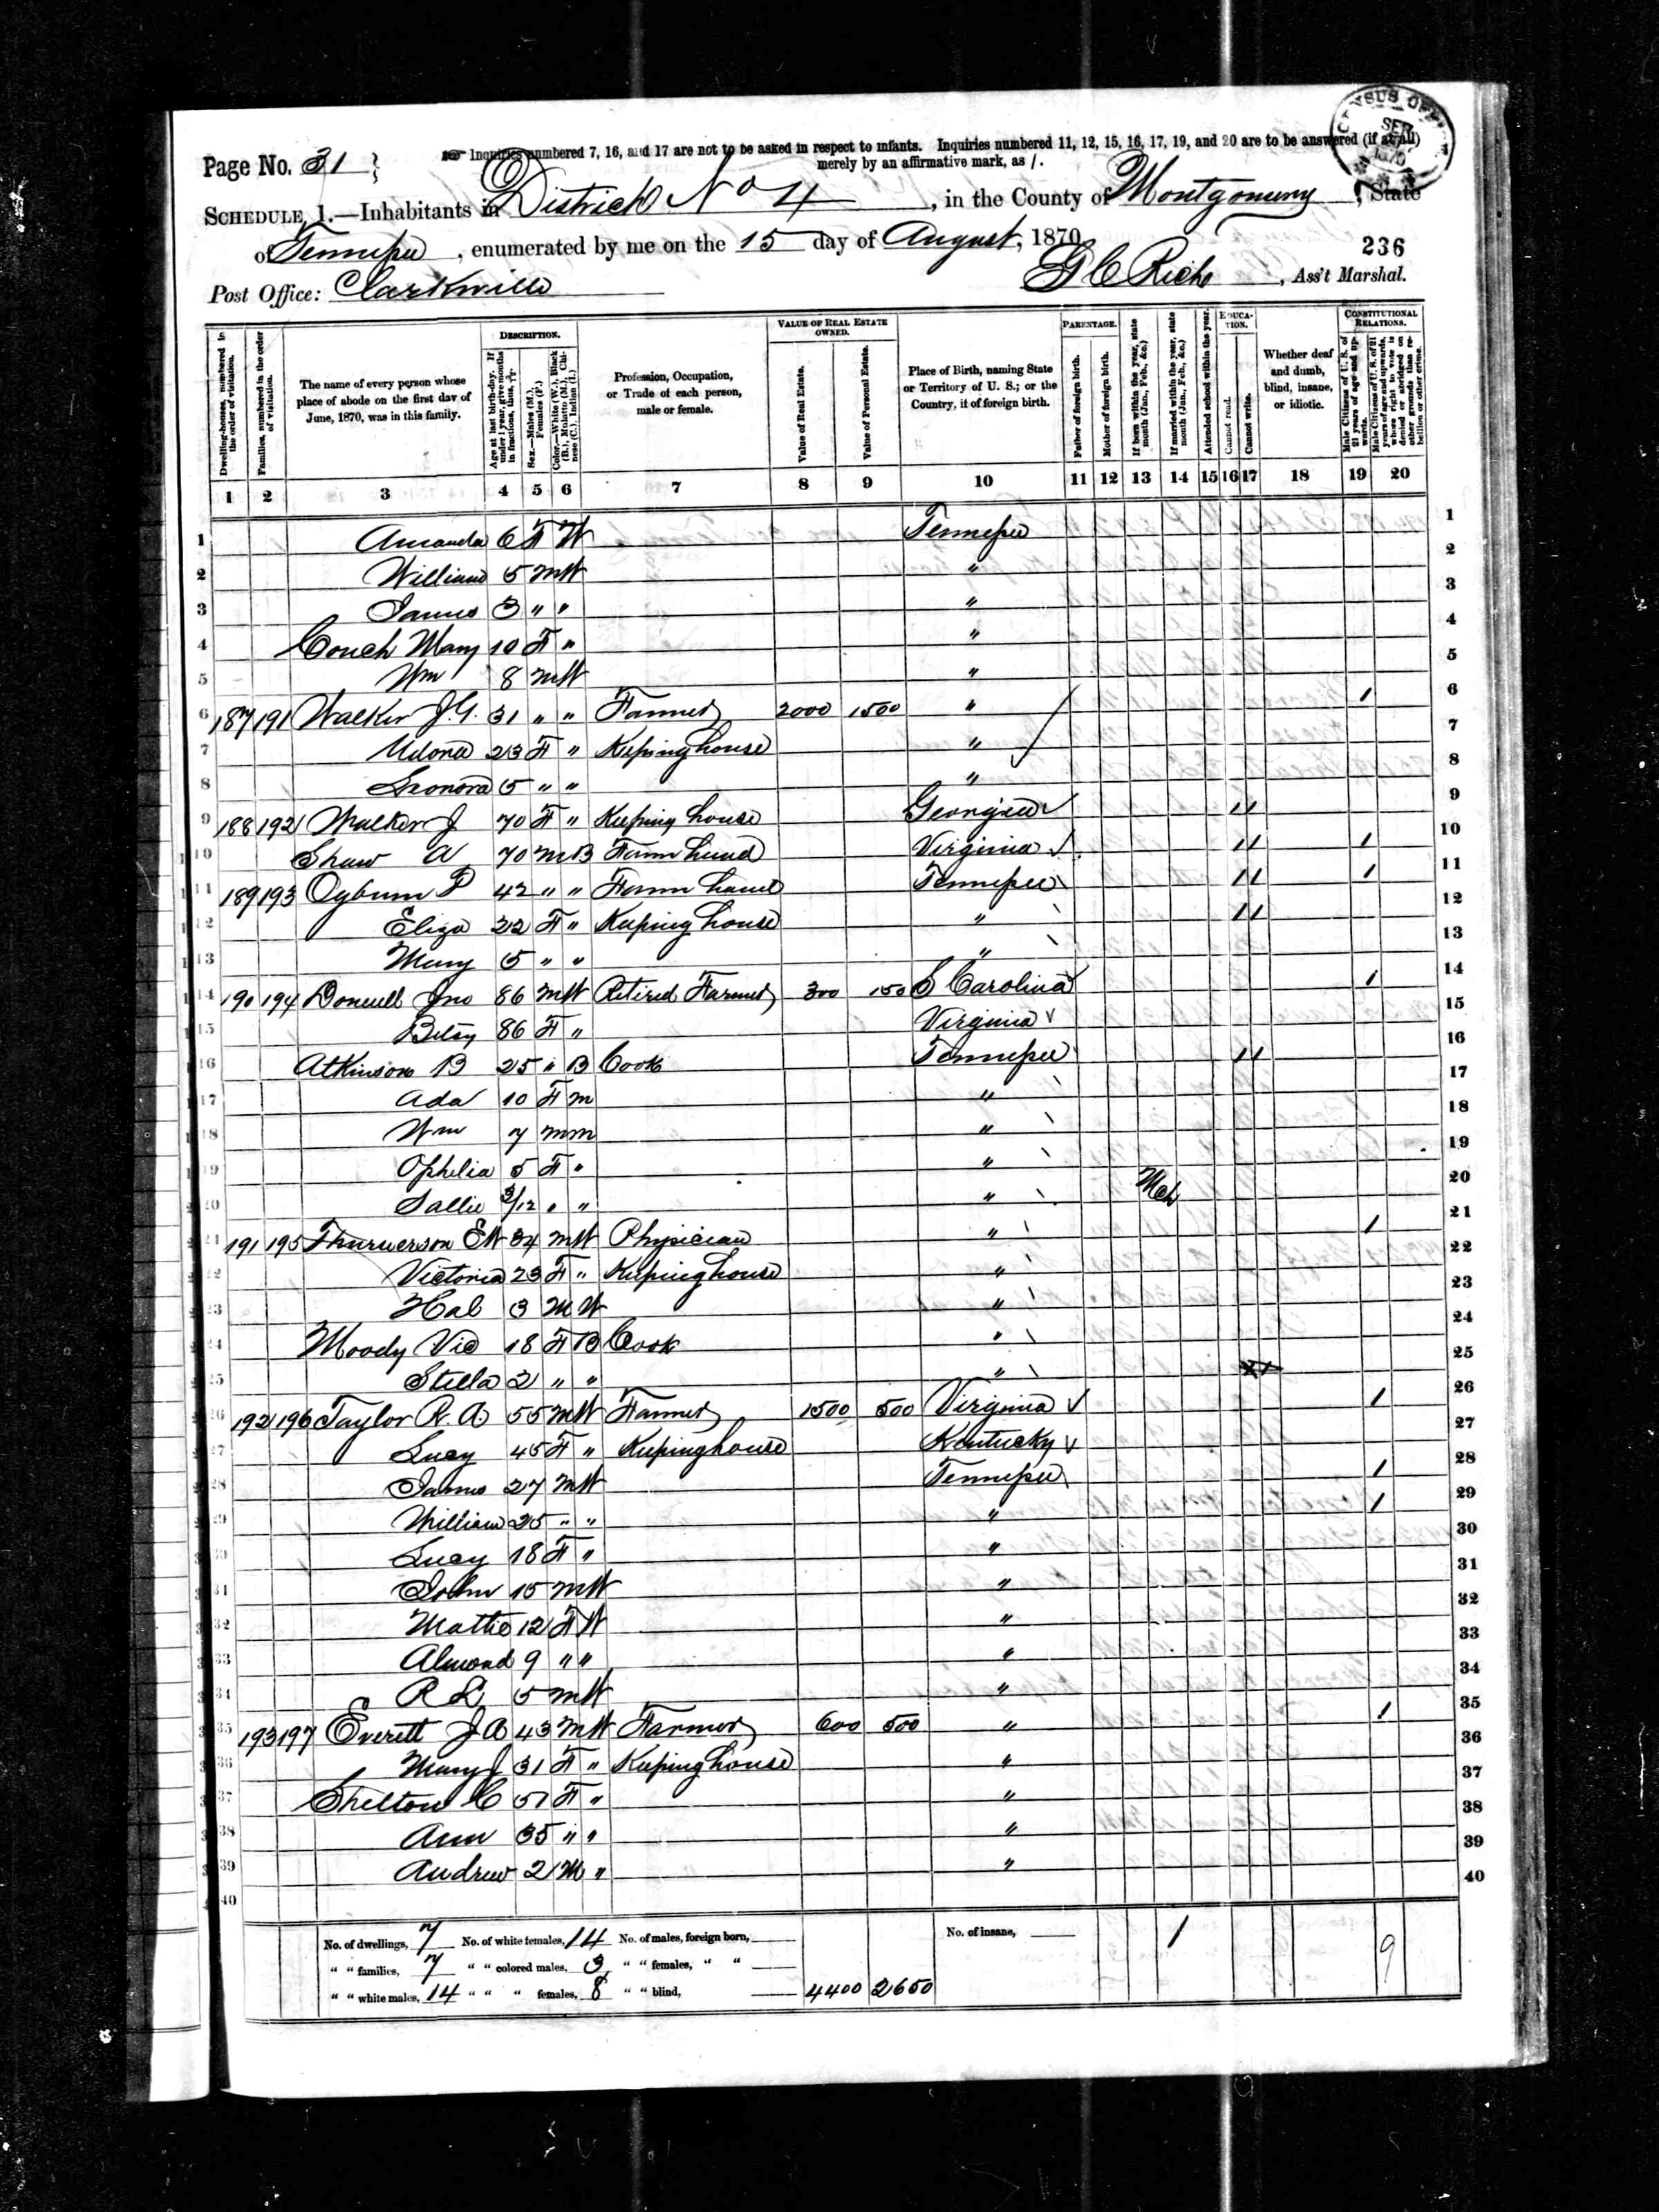 Page No. 31
Inquiries numbered 7, 16, and 17 are not to be asked in respect to infants. Inquiries numbered 11, 12, 15, 16, 17, 19, and 20 are to be answered (if at all)
merely by an affirmative mark, as /.
SCHEDULE 1.—Inhabitants in District No 4, in the County of Montgomery, State
of Tennessee, enumerated by me on the 15 day of August, 1870.
236
Post Office: Clarksville
G C Rich, Ass't Marshal.
Dwelling-houses, numbered in the order of visitation.
Families, numbered in the order of visitation.
The name of every person whose place of abode on the first day of June, 1870, was in this family.
DESCRIPTION.
Age at last birth-day. If under 1 year, give months in fractions, thus, 3/12
Sex.—Males (M.), Females (F.)
Color.—White (W.), Black (B.), Mulatto (M.), Chinese (C.), Indian (I.)
Profession, Occupation, or Trade of each person, male or female.
VALUE OF REAL ESTATE OWNED.
Value of Real Estate.
Value of Personal Estate.
Place of Birth, naming State or Territory of U. S.; or the Country, if of foreign birth.
PARENTAGE.
Father of foreign birth.
Mother of foreign birth.
If born within the year, state month (Jan., Feb., &c.)
If married within the year, state month (Jan., Feb., &c.)
Attended school within the year.
EDUCATION.
Cannot read.
Cannot write.
Whether deaf and dumb, blind, insane, or idiotic.
CONSTITUTIONAL RELATIONS.
Male Citizens of U. S. of 21 years of age and upwards.
Male Citizens of U. S. of 21 years of age and upwards, whose right to vote is denied or abridged on other grounds than rebellion or other crime.
1 2 3 4 5 6 7 8 9 10 11 12 13 14 15 16 17 18 19 20
1 Amanda 6 F W Tennessee 1
2 William 5 M W " 2
3 James 3 " " " 3
4 Couch Mary 10 F " " 4
5 Wm 8 M W " 5
6 187 191 Walker J. G. 31 " " Farmer 2000 1500 " / 6
7 Udora 23 F " Keeping house " 7
8 Leonora 5 " " " 8
9 188 192 Walker J 70 F " Keeping house Georgia / / 9
10 Shaw A 70 M B Farm hand Virginia / / / 10
11 189 193 Ogburn P 42 " " Farm hand Tennessee / / / 11
12 Eliza 22 F " Keeping house " / / 12
13 Mary 5 " " " 13
14 190 194 Jno 86 M W Retired Farmer 300 150 S Carolina / 14
15 Betsy 86 F " Virginia 15
16 Atkinson B 25 " B Cook Tennessee / / 16
17 Ada 10 F M " 17
18 Wm 7 M M " 18
19 Ophelia 5 F " " 19
20 Sallie 3/12 " " " Mch 20
21 191 195 E W 34 M W Physician " / 21
22 Victoria 23 F " Keeping house " 22
23 Hal 3 M W " 23
24 Moody Vic 18 F B Cook " 24
25 Stella 2 " " " 25
26 192 196 Taylor R. A 55 M W Farmer 1500 500 Virginia / 26
27 Lucy 45 F " Keeping house Kentucky 27
28 James 27 M W Tennessee / 28
29 William 25 " " " / 29
30 Lucy 18 F " " 30
31 John 15 M W " 31
32 Mattie 12 F W " 32
33 Almond 9 " " " 33
34 R L 5 M W " 34
35 193 197 Everett J A 43 M W Farmer 600 500 " / 35
36 Mary J 31 F " Keeping house " 36
37 Shelton C 51 F " " 37
38 Ann 35 " " " 38
39 Andrew 2 M " " 39
40 40
No. of dwellings, 7 No. of white females, 14 No. of males, foreign born, No. of insane, 1 9
" " families, 7 " " colored males, 3 " " females, " "
" " white males, 14 " " " females, 8 " " blind, 4400 2650